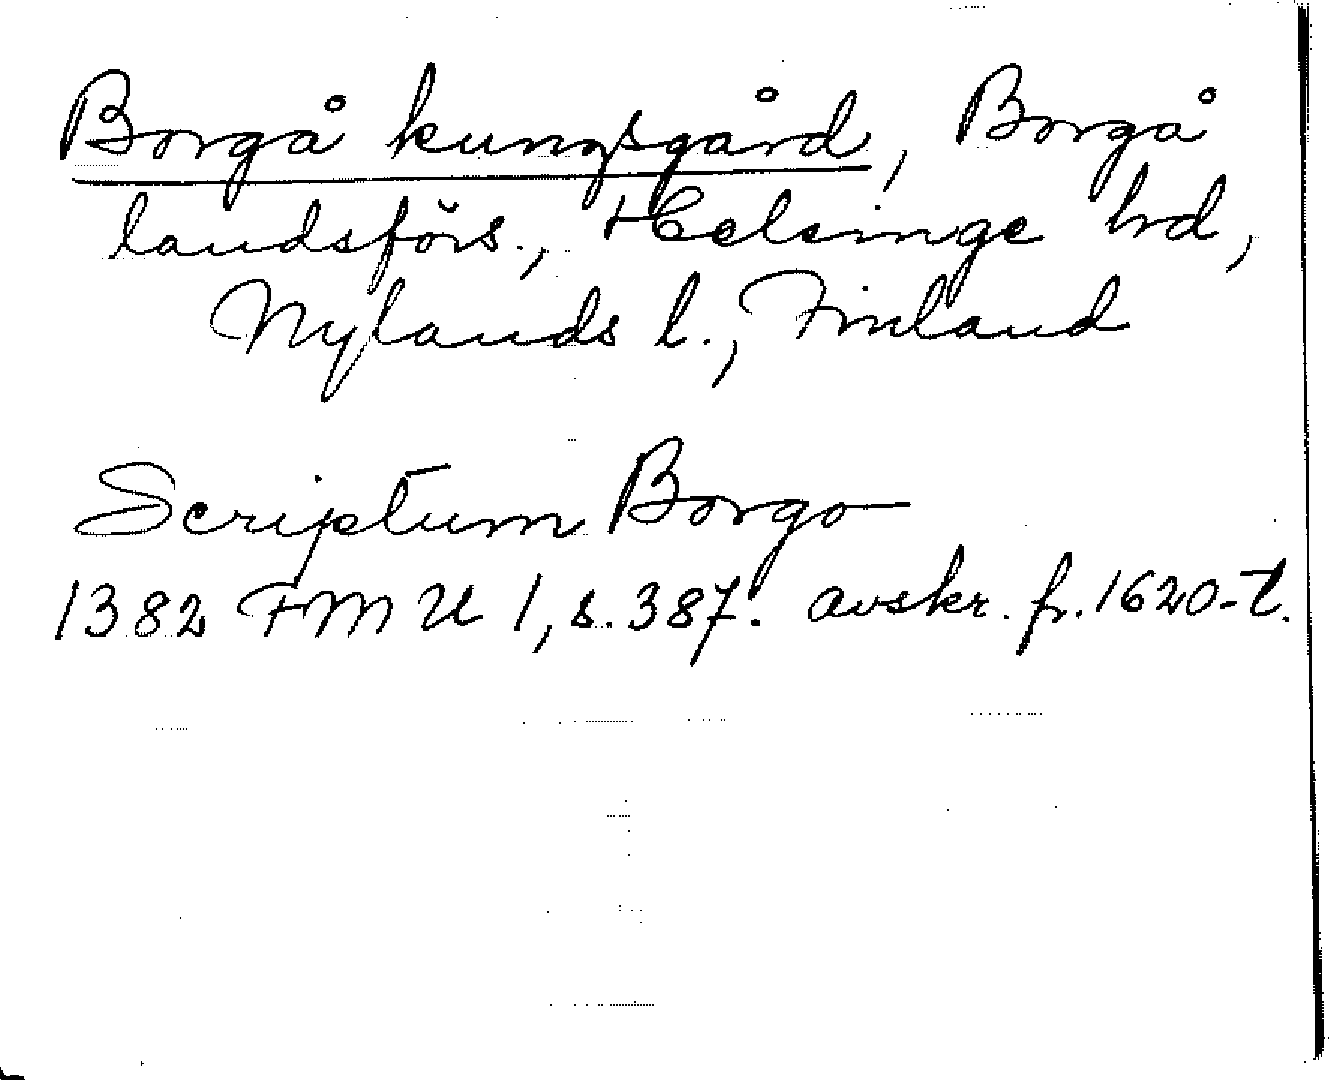 Borgå kungsgård, Borgå
landsförs., Helsinge hd,
Nylands l., Finland
Scriptum Borgo
1382 FMU 1, s. 387. avskr. fr. 1620-t.